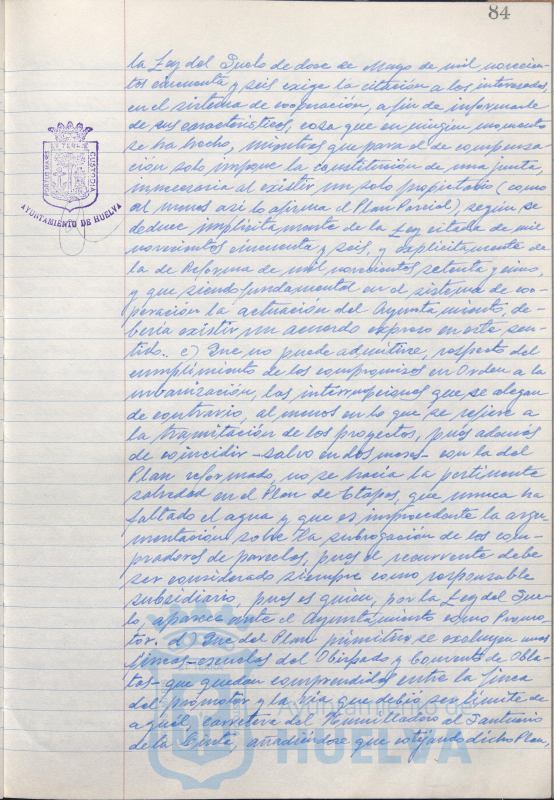 84
la Ley del Suelo de doce de Mayo de mil novecien-
tos cincuenta y seis exige la citación a los interesados,
en el sistema de cooperación, a fin de informarle
de sus características, cosa que en ningún momento
se ha hecho, mientras que para el de compensa-
ción solo impone la constitución de una junta,
innecesaria al existir un solo propietario (como
al menos así lo afirma el Plan Parcial), según se
deduce implícitamente de la Ley citada de mil
novecientos cincuenta y seis, y explícitamente de
la de Reforma de mil novecientos setenta y cinco,
y que siendo fundamental en el sistema de coo-
peración la actuación del Ayuntamiento, de-
bería existir un acuerdo expreso en este sen-
tido. c) Que no puede admitirse, respecto del
cumplimiento de los compromisos en Orden a la
urbanización, las interrupciones que se alegan
de contrario, al menos en lo que se refiere a
la tramitación de los proyectos, pues además
de coincidir -salvo en dos meses- con la del
Plan reformado, no se hacía la pertinente
salvedad en el Plan de Etapas, que nunca ha
faltado el agua y que es improcedente la argu-
mentación sobre la subrogación de los com-
pradores de parcelas, pues el recurrente debe
ser considerado siempre como responsable
subsidiario, pues es quien, por la Ley del Sue-
lo, aparece ante el Ayuntamiento como Promo-
tor. d) Que del Plan primitivo se excluyen unas
fincas -escuelas del Obispado y Convento de Obla-
tas- que quedan comprendidas entre la finca
del promotor y la vía que debió ser límite de
aquél, carretera del Humilladero al Santuario
de la Cinta, añadiéndose que citando dicho Plan,
AYUNTAMIENTO DE HUELVA
CUSTODIA
Ayuntamiento de
HUELVA